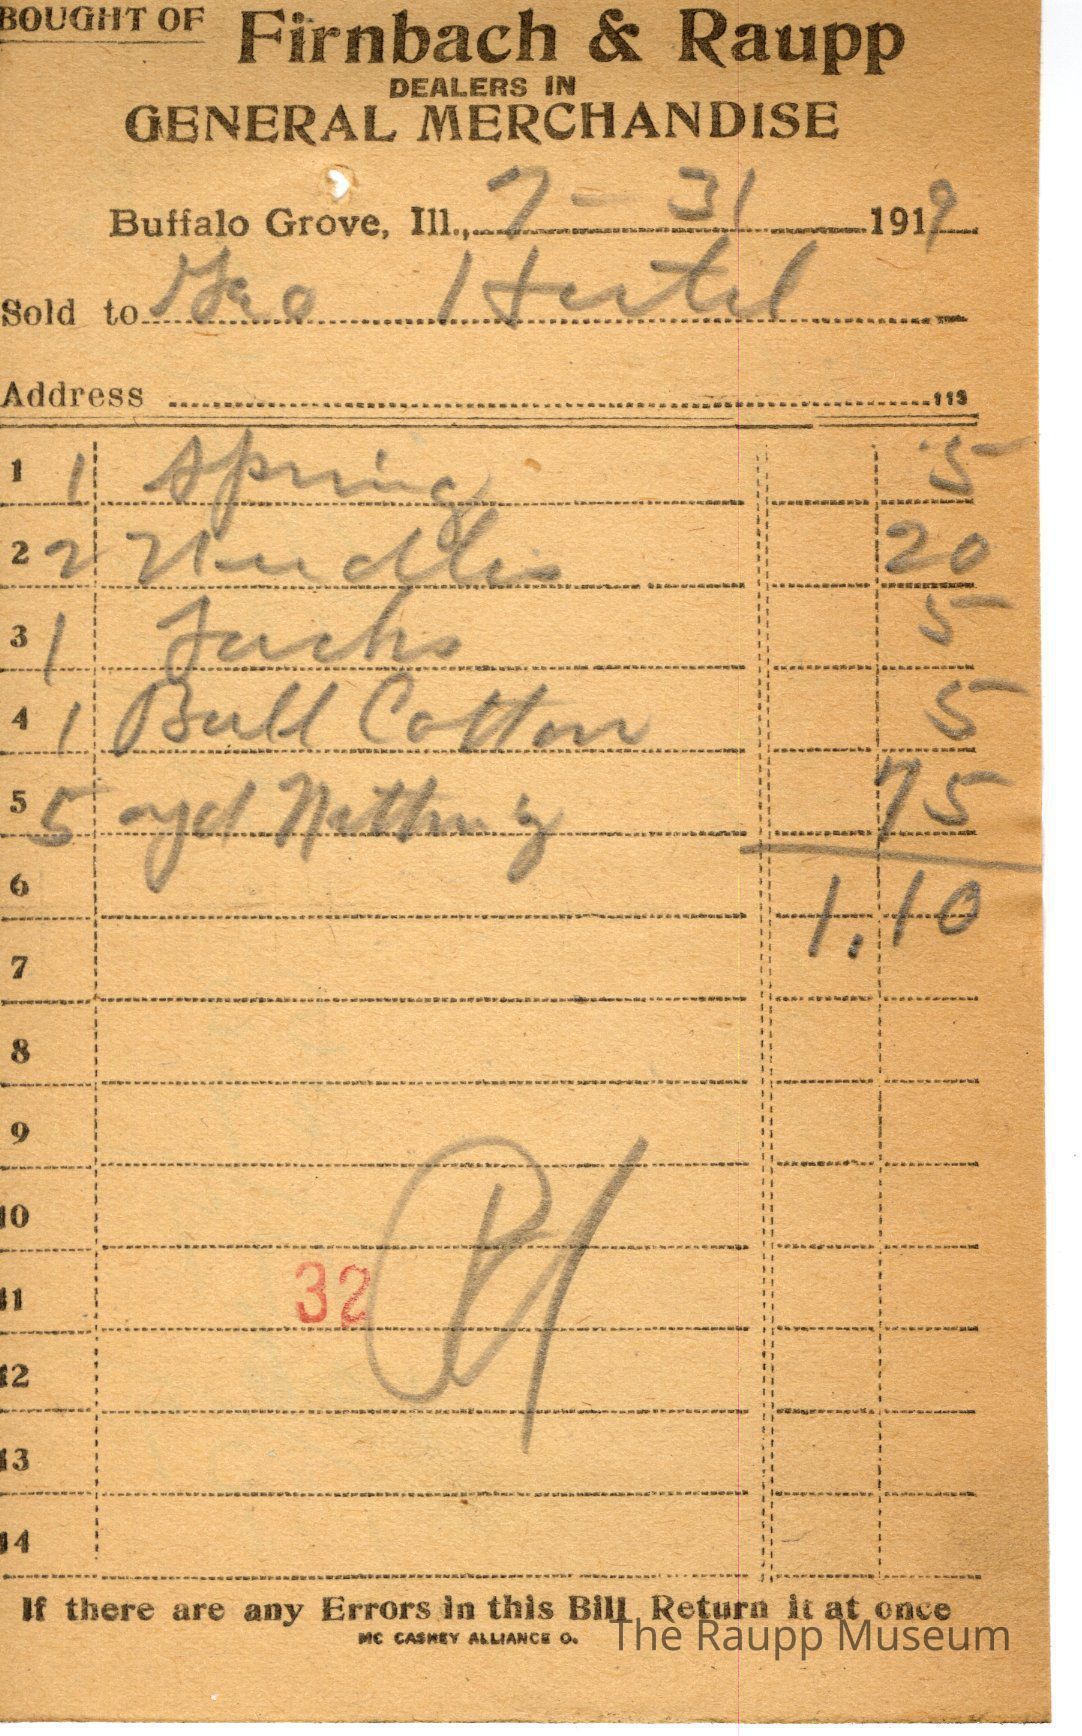 BOUGHT OF Firnbach & Raupp
DEALERS IN
GENERAL MERCHANDISE
Buffalo Grove, Ill., 7 - 31 1919
Sold to Geo Hertel
Address 113
1 1 Spring 5
2 2 Nudlis 20
3 1 5
4 1 Ball Cotton 5
5 5 yd Netting 75
6 1.10
7
8
9
10
11 32
12
13
14
If there are any Errors in this Bill Return it at once
MC CASKEY ALLIANCE O.
The Raupp Museum